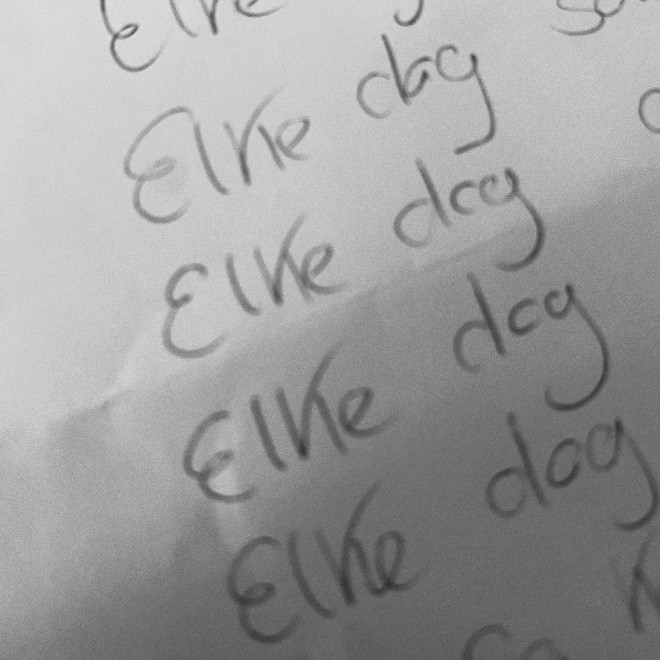 Elke
Elke dag
Elke dag
Elke dag
Elke dag